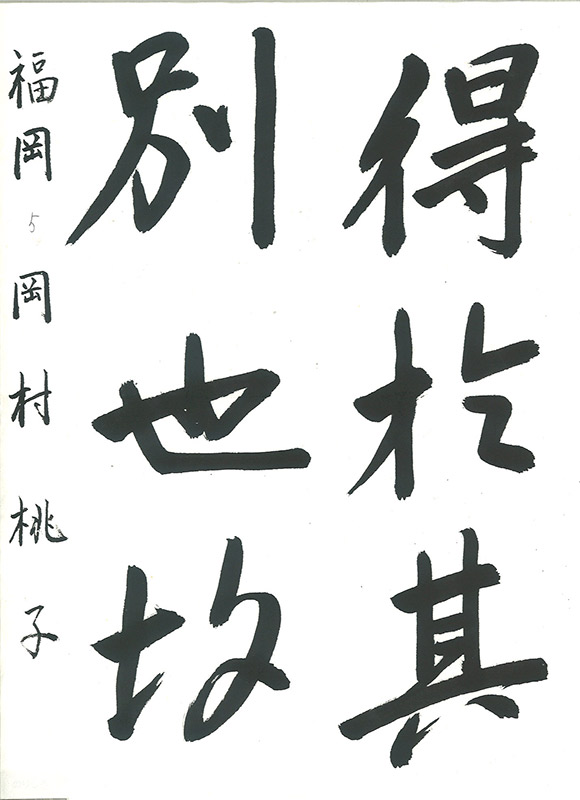 得於其
別也故
福岡 5 岡村桃子